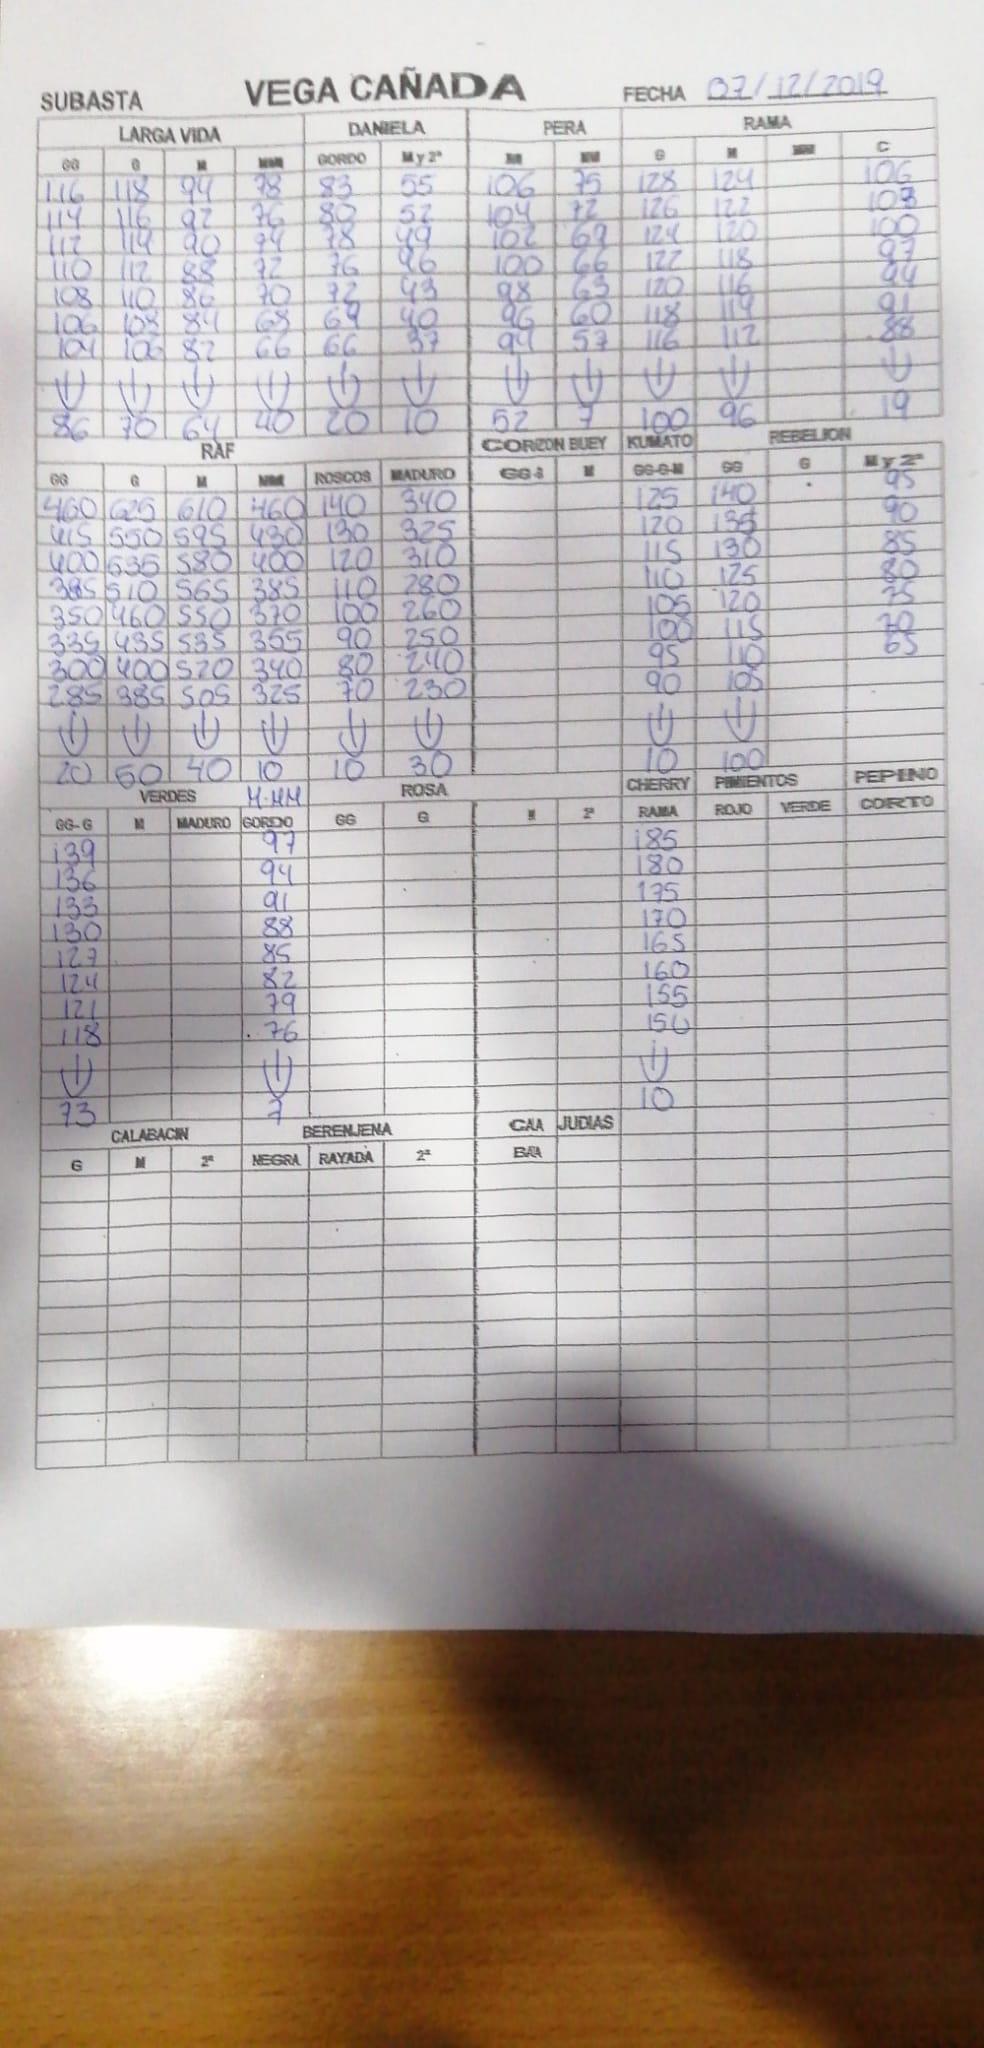 SUBASTA VEGA CAÑADA FECHA 07/12/2019
LARGA VIDA DANIELA PERA RAMA
GG G M MM GORDO M y 2ª M MM G M MM C
116 118 94 78 83 55 106 75 128 124 106
114 116 92 76 80 52 104 72 126 122 103
112 114 90 74 78 49 102 69 124 120 100
110 112 88 72 76 46 100 66 122 118 97
108 110 86 70 72 43 98 63 120 116 94
106 108 84 68 69 40 96 60 118 114 91
104 106 82 66 66 37 94 57 116 112 88
86 70 64 40 20 10 52 7 100 96 19
RAF CORZON BUEY KUMATO REBELION
GG G M MM ROSCOS MADURO GG M GG-G-M GG G M y 2ª
460 625 610 460 140 340 125 140 95
415 550 595 430 130 325 120 135 90
400 535 580 400 120 310 115 130 85
385 510 565 385 110 280 110 125 80
350 460 550 370 100 260 105 120 75
335 435 535 355 90 250 100 115 70
300 400 520 340 80 240 95 110 65
285 385 505 325 70 230 90 105
20 50 40 10 10 30 10 100
VERDES M-MM ROSA CHERRY PIMIENTOS PEPINO
GG-G M MADURO GORDO GG G M 2ª RAMA ROJO VERDE CORTO
139 97 185
136 94 180
133 91 175
130 88 170
127 85 165
124 82 160
121 79 155
118 76 150
73 7 10
CALABACIN BERENJENA CAA JUDIAS
G M 2ª NEGRA RAYADA 2ª BAA